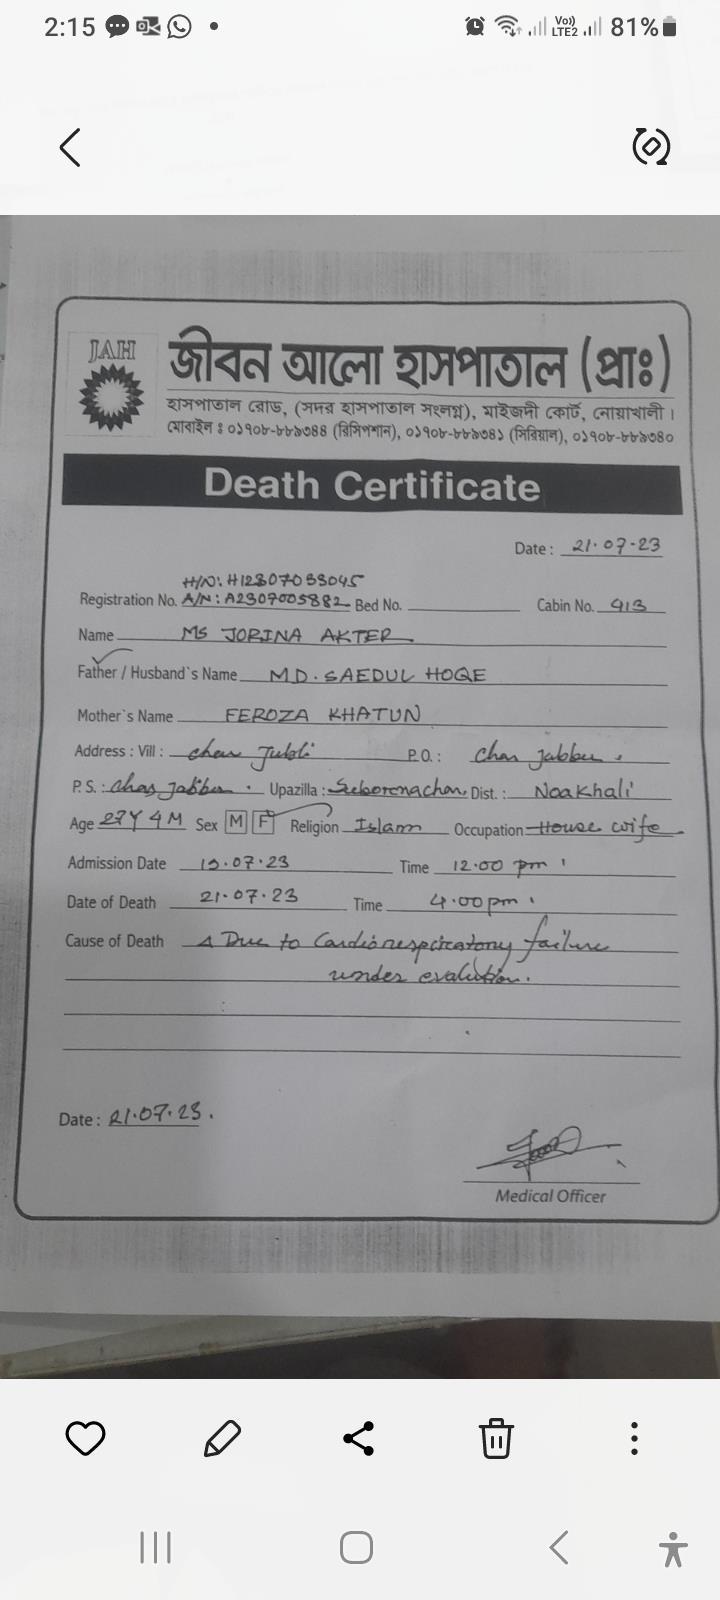 2:15 81%
Vo))
LTE2
JAH
জীবন আলো হাসপাতাল (প্রাঃ)
হাসপাতাল রোড, (সদর হাসপাতাল সংলগ্ন), মাইজদী কোর্ট, নোয়াখালী।
মোবাইল ঃ ০১৭০৮-৮৮৯৩৪৪ (রিসিপশান), ০১৭০৮-৮৮৯৩৪১ (সিরিয়াল), ০১৭০৮-৮৮৯৩৪০
Death Certificate
Date : 21.07.23
H/N: H12307053045
Registration No. A/N: A2307005882 Bed No. Cabin No. 913
Name MS JORINA AKTER
Father / Husband`s Name MD. SAEDUL HOQE
Mother`s Name FEROZA KHATUN
Address : Vill : char Jubli P.O. : char jabbar.
P.S. : char jabbar. Upazilla : Suborenachar, Dist. : Noakhali
Age 27Y 4M Sex M F Religion Islam Occupation House wife
Admission Date 19.07.23 Time 12:00 pm
Date of Death 21.07.23 Time 4.00pm
Cause of Death Due to Cardiorespiratory failure
under evalution.
Date : 21.07.23.
Medical Officer